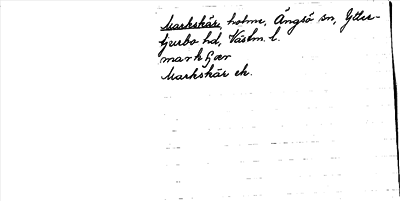 Markskär, holme, Ängsö sn, Ytter-
tjurbo hd, Västm. l.
markʃær
Markskär ek.